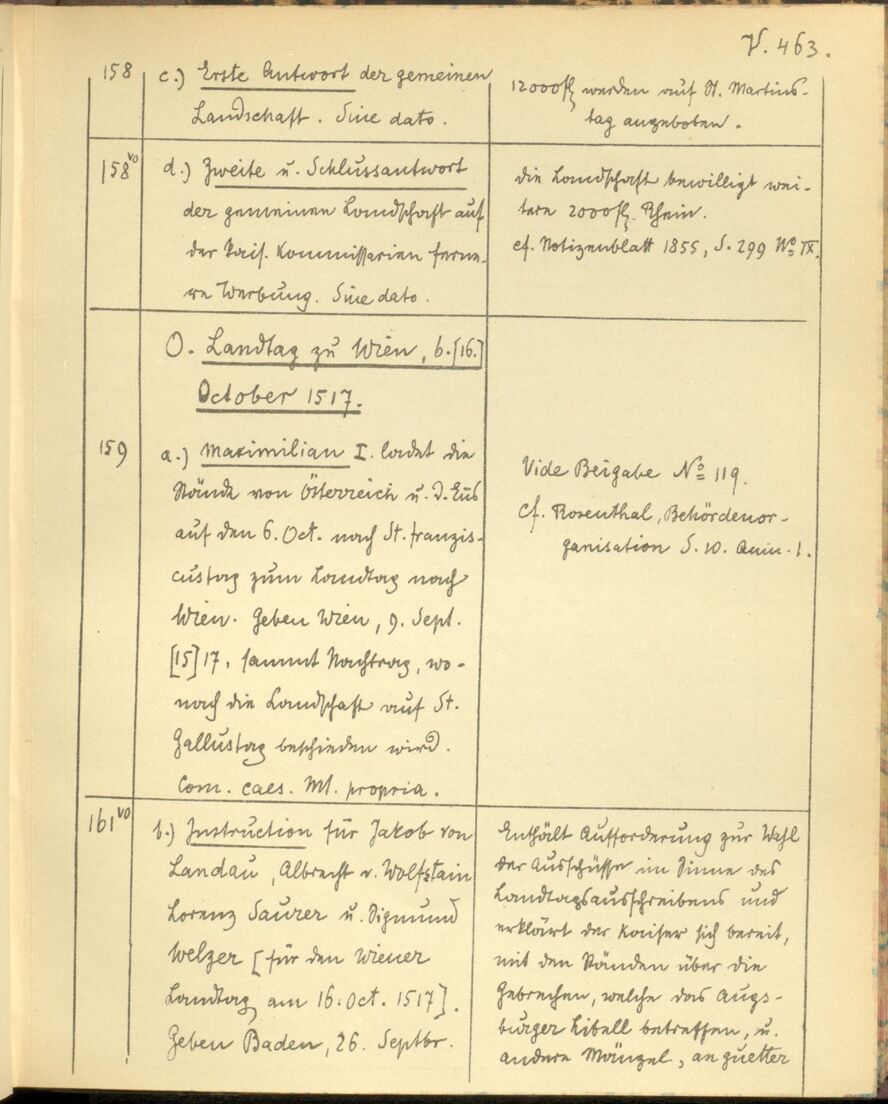 V. 463.
158
c.) Erste Antwort der gemeinen
Landschaft. Sine dato.
12000 fl werden auf St. Martins-
tag angeboten.
158vo
d.) Zweite u. Schlussantwort
der gemeinen Landschaft auf
der kais. Kommissarien ferne-
re Werbung. Sine dato.
die Landschaft bewilligt wei-
tere 2000 fl. Rhein.
cf. Notizenblatt 1855, S. 299 No IX.
O. Landtag zu Wien, 6.[16.]
October 1517.
159
a.) Maximilian I. ladet die
Stände von Österreich u. d. Ens
auf den 6. Oct. nach St. Franzis-
custag zum Landtag nach
Wien. Geben Wien, 9. Sept.
[15]17, sammt Nachtrag, wo-
nach die Landschaft auf St.
Gallustag beschieden wird.
Com. caes. Mt. propria.
Vide Beigabe No 119.
cf. Rosenthal, Behördenor-
ganisation S. 10. Anm. 1.
161vo
b.) Instruction für Jakob von
Landau, Albrecht v. Wolfstain
Lorenz Saurer u. Sigmund
Welzer [für den Wiener
Landtag am 16. Oct. 1517].
Geben Baden, 26. Septbr.
Enthält Aufforderung zur Wahl
der Ausschüsse im Sinne des
Landtagsausschreibens und
erklärt der Kaiser sich bereit,
mit den Ständen über die
Gebrechen, welche das Augs-
burger Libell betreffen, u.
andere Mängel, an guetter